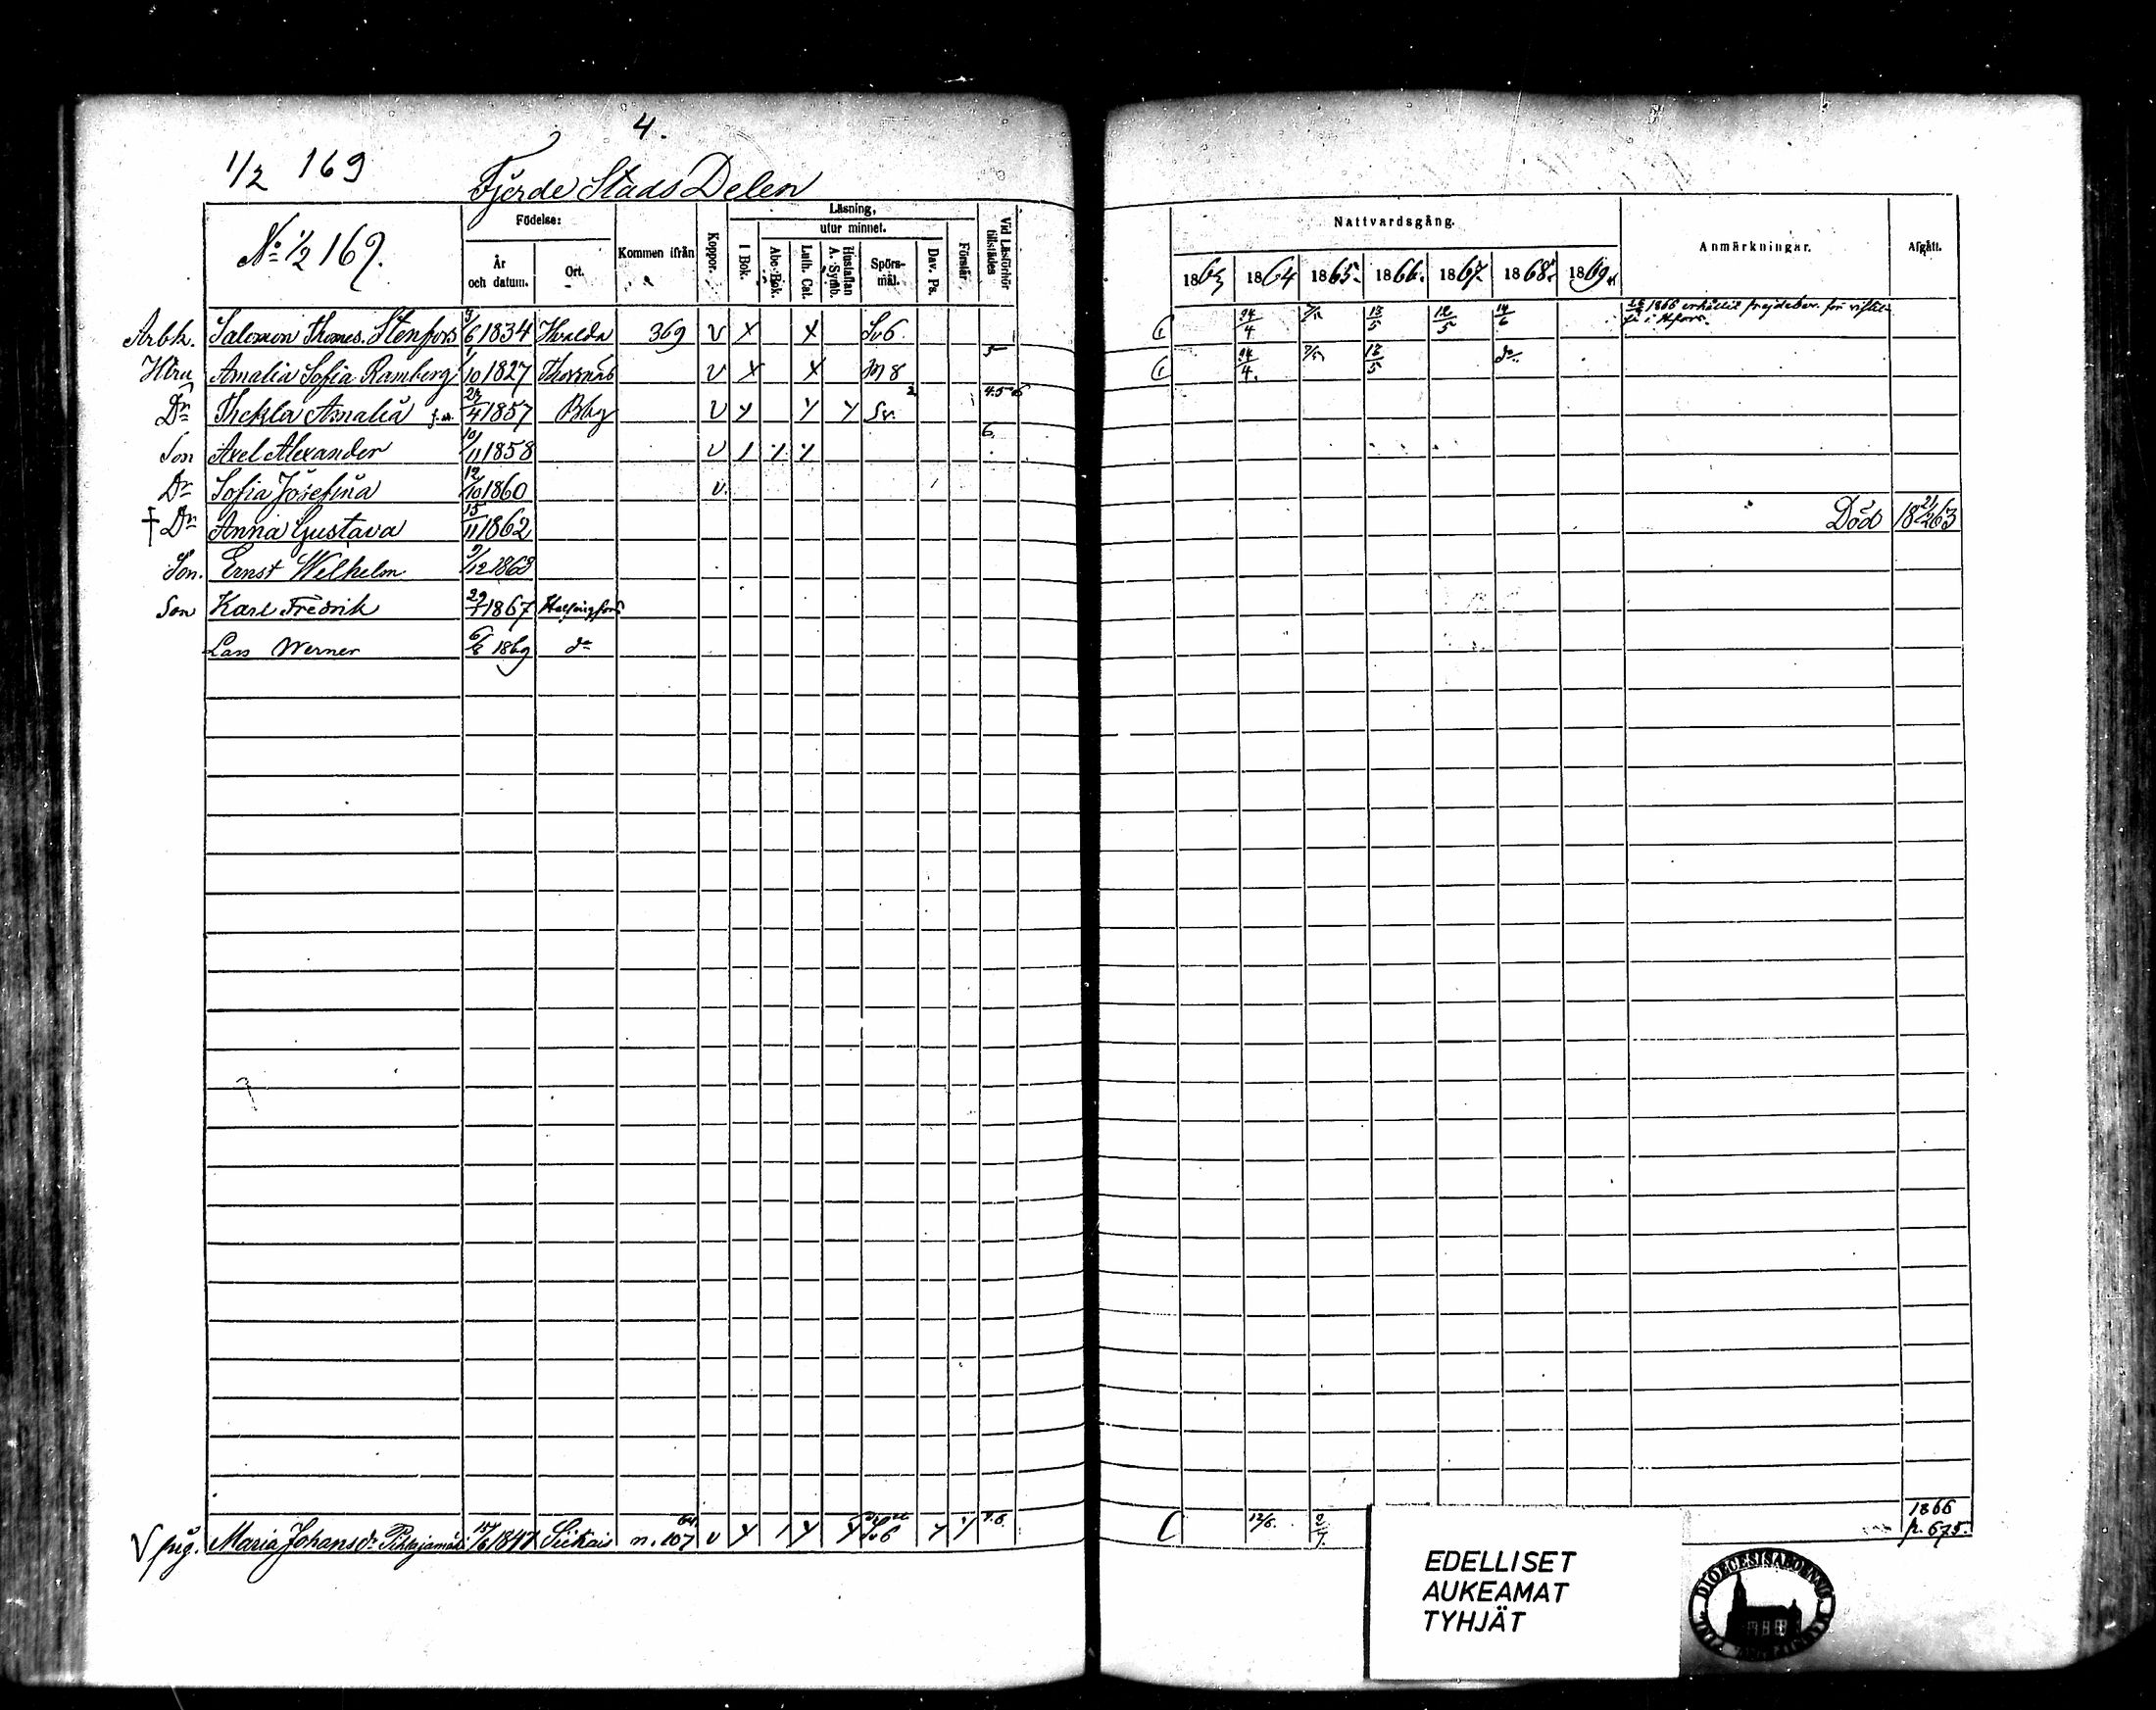 4.
1/2 169
Fjerde Stads Delen
No 1/2 169.
Födelse:
År och datum.
Ort.
Kommen ifrån
Koppor.
Läsning,
utur minnet.
I Bok.
Abc-Bok.
Luth. Cat.
Hustaflan A. Symb.
Spörs-mål.
Dav. Ps.
Förstår.
Vid Läsförhör tillstädes
Nattvardsgång.
1863 1864 1865. 1866. 1867. 1868. 1869.
Anmärkningar.
Afgått.
Arbk. Salomon Thomes. Stenfors 3/6 1834 369 v x x Sv6 24/4 13/5 12/5 14/6 1866 erhållit frejdebev. för
Hstru Amalia Sofia Ramberg 1/10 1827 v x x M8 5 24/4. 13/5 do
Dr Thekla Amalia 24/4 1857 Bbg v y y y Sv. 2 4.5 6
Son Axel Alexander 10/11 1858 v 6
Dr Sofia Josefina 12/10 1860 v.
† Dr Anna Gustava 15/11 1862 Död 18 21/2 63
Son. Ernst Wilhelm 9/12 1863
Son Karl Fredrik 29/ 1867 Helsingfors
Lars Werner 6/ 1869 do
V pig. Maria Johansdr Pihlajamäki 15/6 1847 Siikais n. 107 64 v y 1 y y Sv6 y y 7.6 C 12/6. 2/7. 1866 p. 675.
EDELLISET
AUKEAMAT
TYHJÄT